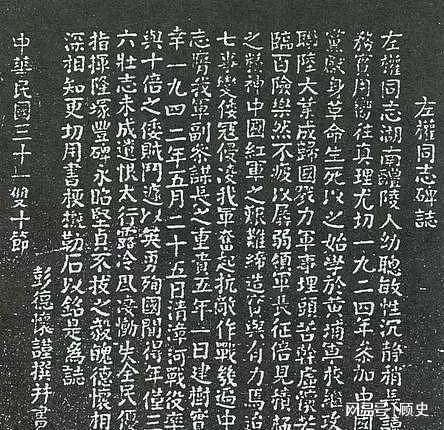 左權同志碑誌
左權同志湖南醴陵人幼聰敏性沉静稍長讀
務實用嚮往真理尤切一九二四年參加中國
黨獻身革命生死以之始學於黃埔軍校繼攻
聯陸大業成歸國戮力軍事埋頭苦幹虛懷若
臨百險樂然不疲以孱弱領軍長征倍見積極
之精神中國紅軍之艱難締造實與有力焉迨
七事變倭寇侵凌我軍奮起抗敵作戰幾遍中
志膺我軍副參謀長之重責五年一日建樹實
幸一九四二年五月二十五日清漳河戰役率
與十倍之倭賊鬥遽以英勇殉國聞得年僅三
六壯志未成遺恨太行露冷風淒慟失全民優
指揮隆塚豐碑永昭堅貞不拔之毅魄德懷相
深相知更切用書梗概勒石以銘是為誌
彭德懷謹撰并書
中華民國三十一雙十節
顾史